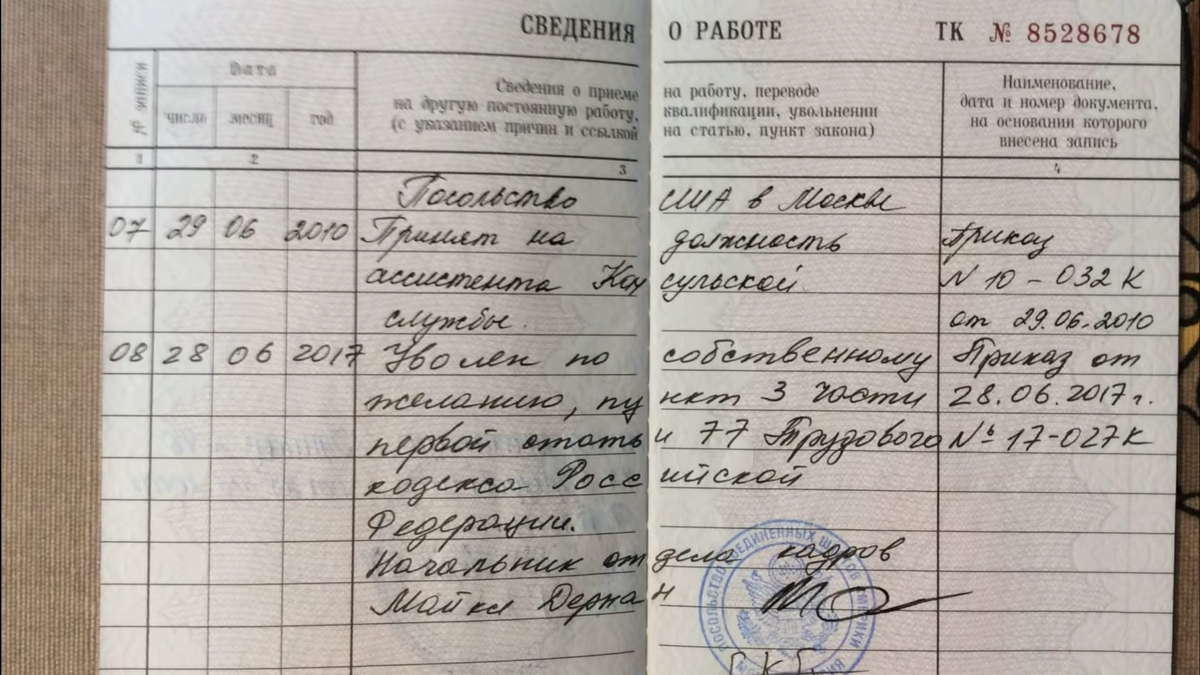 СВЕДЕНИЯ О РАБОТЕ ТК № 8528678
№ записи
Дата
число месяц год
Сведения о приеме на работу, переводе
на другую постоянную работу, квалификации, увольнении
(с указанием причин и ссылкой на статью, пункт закона)
Наименование,
дата и номер документа,
на основании которого
внесена запись
1 2 3 4
Посольство США в Москве
07 29 06 2010 Принят на должность Приказ
ассистента Консульской N 10-032 К
службы. от 29.06.2010
08 28 06 2017 Уволен по собственному Приказ от
желанию, пункт 3 части 28.06.2017 г.
первой статьи 77 Трудового № 17-027 К
кодекса Российской
Федерации.
Начальник отдела кадров
Майкл Дернан
ПОСОЛЬСТВО СОЕДИНЕННЫХ ШТАТОВ АМЕРИКИ